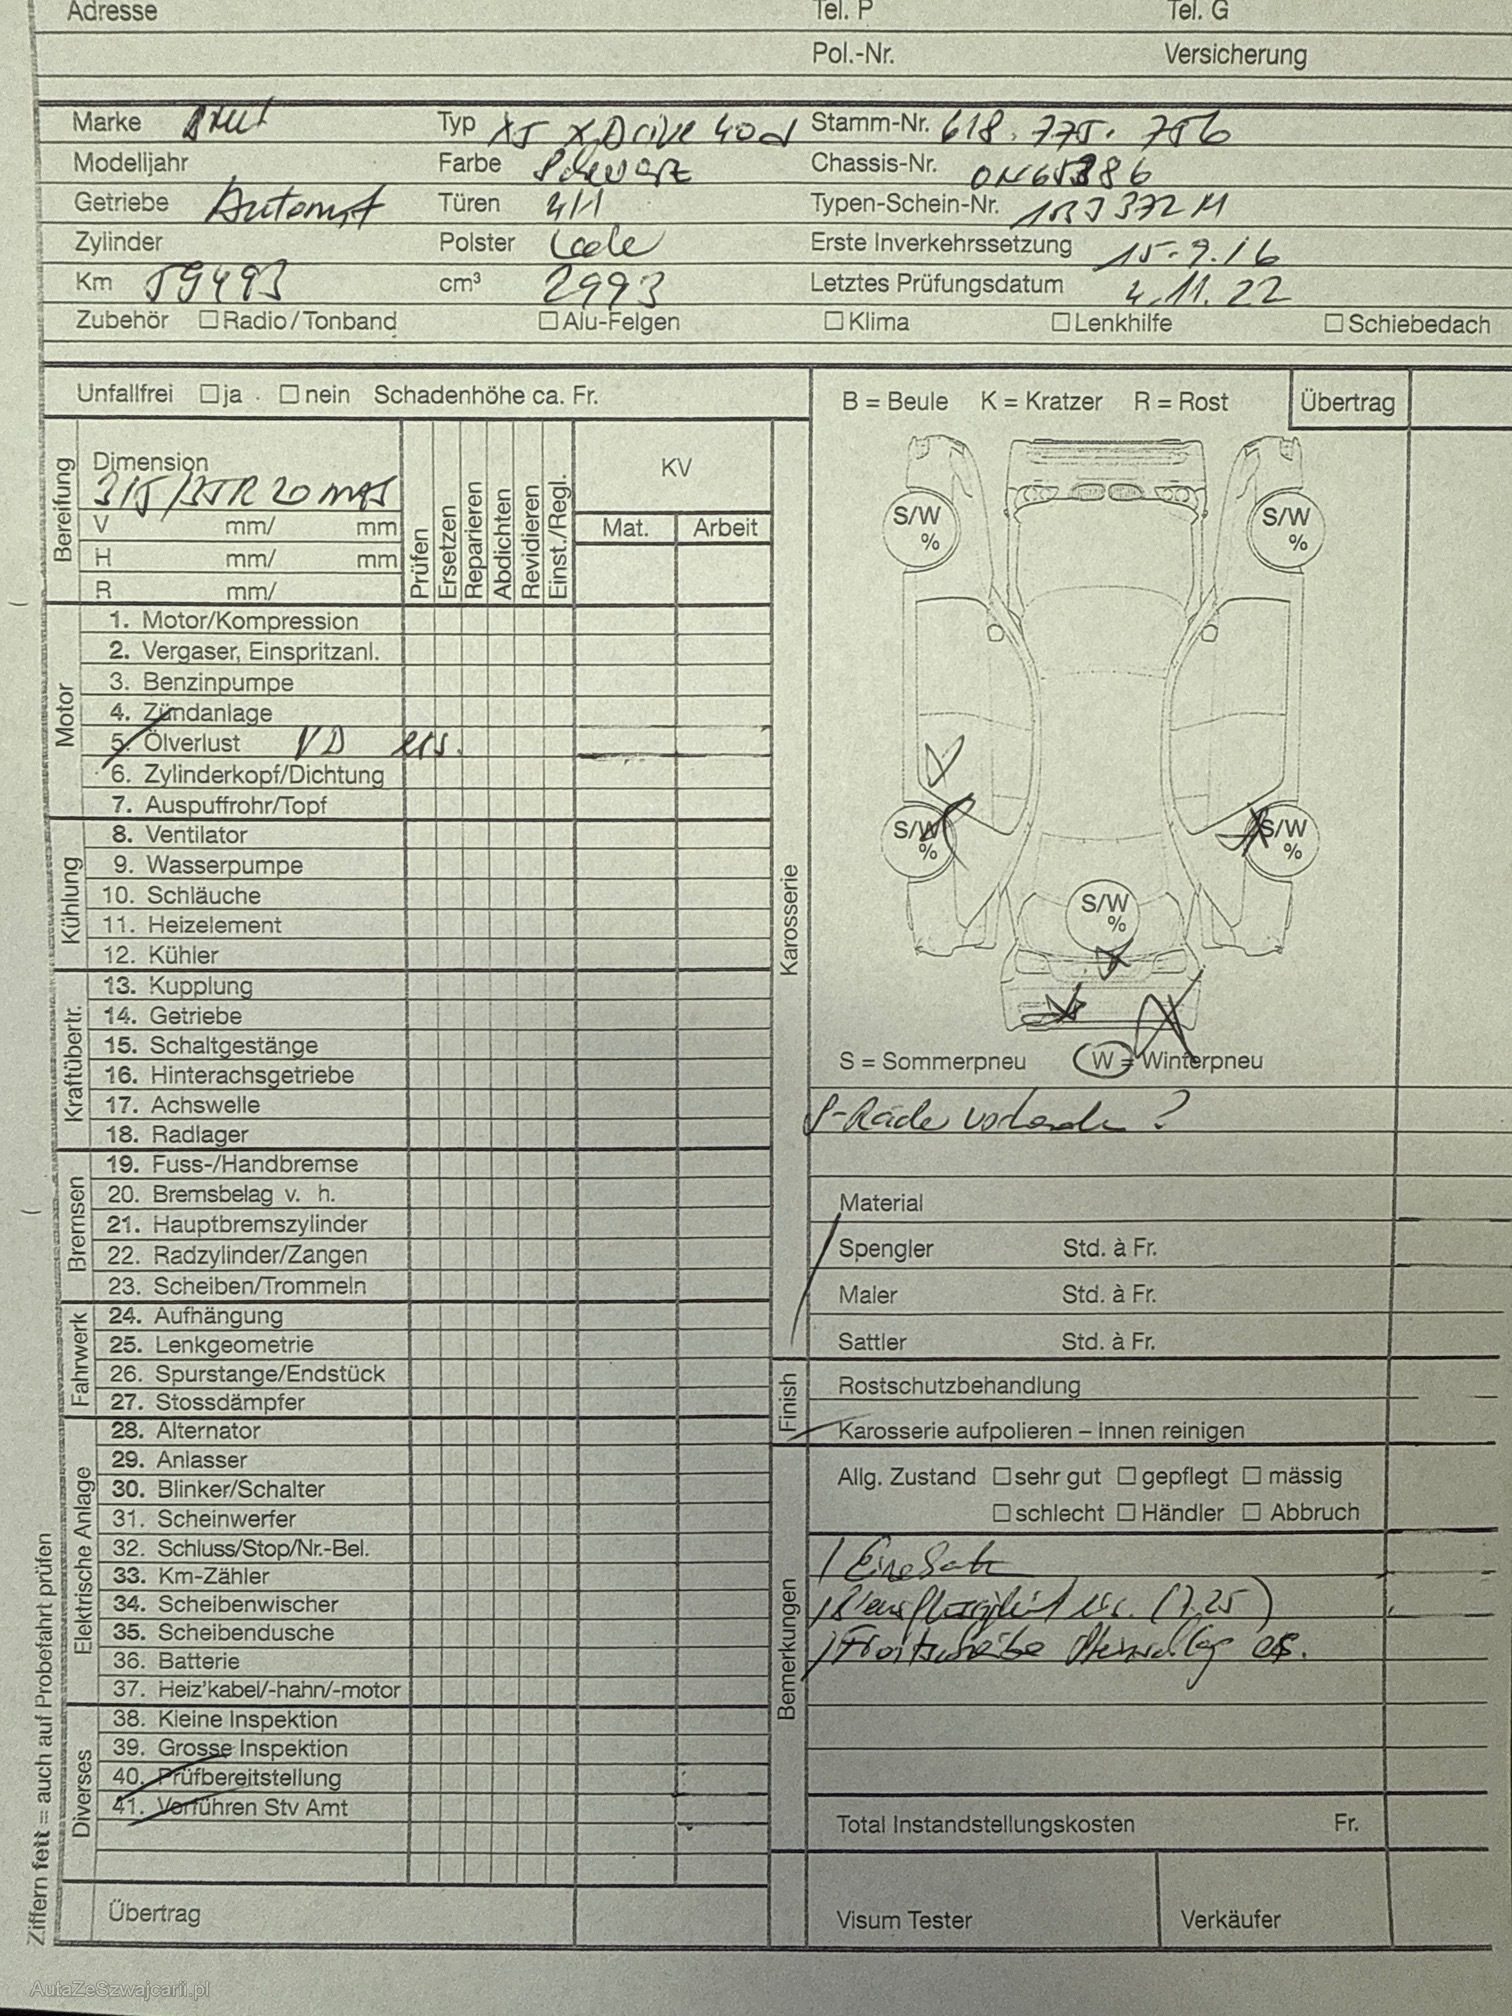 Adresse Tel. P Tel. G
Pol.-Nr. Versicherung
Marke BMW Typ X5 XDrive 40d Stamm-Nr. 618.775.756
Modelljahr Farbe Schwarz Chassis-Nr.
Getriebe Automat Türen 4/1 Typen-Schein-Nr.
Zylinder Polster Erste Inverkehrssetzung 15.9.16
Km 59493 cm³ 2993 Letztes Prüfungsdatum 4.11.22
Zubehör Radio/Tonband Alu-Felgen Klima Lenkhilfe Schiebedach
Unfallfrei ja nein Schadenhöhe ca. Fr.
B = Beule K = Kratzer R = Rost Übertrag
Bereifung
Dimension
315/35R20
V mm/ mm
H mm/ mm
R mm/
Prüfen
Ersetzen
Reparieren
Abdichten
Revidieren
Einst./Regl.
KV
Mat. Arbeit
Motor
1. Motor/Kompression
2. Vergaser, Einspritzanl.
3. Benzinpumpe
4. Zündanlage
5. Ölverlust VD ers.
6. Zylinderkopf/Dichtung
7. Auspuffrohr/Topf
Kühlung
8. Ventilator
9. Wasserpumpe
10. Schläuche
11. Heizelement
12. Kühler
Kraftübertr.
13. Kupplung
14. Getriebe
15. Schaltgestänge
16. Hinterachsgetriebe
17. Achswelle
18. Radlager
Bremsen
19. Fuss-/Handbremse
20. Bremsbelag v. h.
21. Hauptbremszylinder
22. Radzylinder/Zangen
23. Scheiben/Trommeln
Fahrwerk
24. Aufhängung
25. Lenkgeometrie
26. Spurstange/Endstück
27. Stossdämpfer
Elektrische Anlage
28. Alternator
29. Anlasser
30. Blinker/Schalter
31. Scheinwerfer
32. Schluss/Stop/Nr.-Bel.
33. Km-Zähler
34. Scheibenwischer
35. Scheibendusche
36. Batterie
37. Heiz'kabel/-hahn/-motor
Diverses
38. Kleine Inspektion
39. Grosse Inspektion
40. Prüfbereitstellung
41. Vorführen Stv Amt
Übertrag
Ziffern fett = auch auf Probefahrt prüfen
Karosserie
S/W %
S/W %
S/W %
S/W %
S/W %
S = Sommerpneu W = Winterpneu
S-Räder vorhanden ?
Material
Spengler Std. à Fr.
Maler Std. à Fr.
Sattler Std. à Fr.
Finish
Rostschutzbehandlung
Karosserie aufpolieren – Innen reinigen
Bemerkungen
Allg. Zustand sehr gut gepflegt mässig
schlecht Händler Abbruch
(7.25)
Frontscheibe Steinschlag ers.
Total Instandstellungskosten Fr.
Visum Tester Verkäufer
AutaZeSzwajcarii.pl